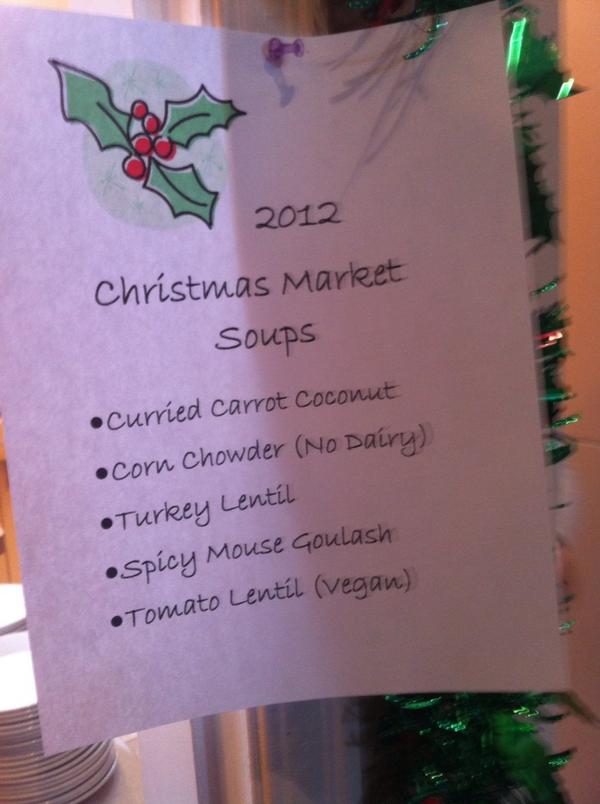 2012
Christmas Market
Soups
•Curried Carrot Coconut
•Corn Chowder (No Dairy)
•Turkey Lentil
•Spicy Mouse Goulash
•Tomato Lentil (Vegan)